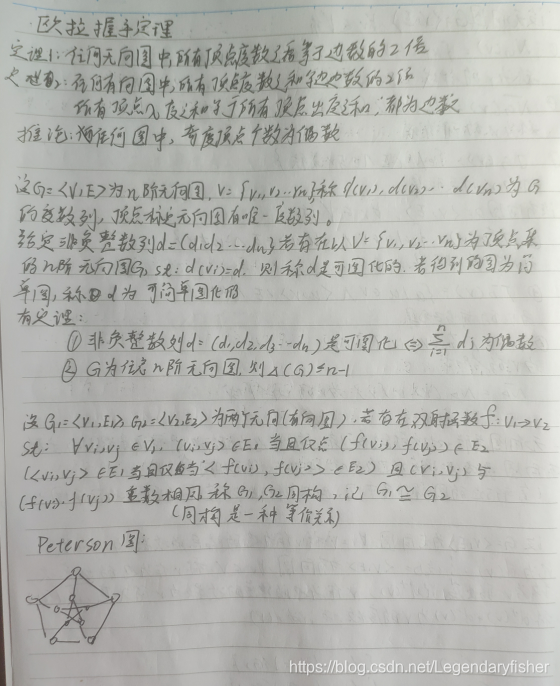 欧拉握手定理
定理1:任何无向图中,所有顶点度数之和等于边数的2倍
定理2:任何有向图中,所有顶点度数之和为边数的2倍
所有顶点入度之和等于所有顶点出度之和,都为边数
推论:任何图中,奇度顶点个数为偶数
设G=<V,E>为n阶无向图,V={v₁,v₂…vn}称d(v₁),d(v₂)…d(vn)为G
的度数列,顶点标定无向图有唯一度数列。
给定非负整数列d=(d₁,d₂…dn)若存在以V={v₁,v₂…vn}为顶点集
的n阶无向图G,st:d(vi)=di 则称d是可图化的.若得到的图为简
单图,称d为可简单图化的
有定理:
① 非负整数列d=(d₁,d₂,d₃…dn)是可图化⇔ n∑i=1 di为偶数
② G为任意n阶无向图,则Δ(G)≤n-1
设G₁=<V₁,E₁>,G₂=<V₂,E₂>为两个无向(有向图),若存在双射函数f:V₁→V₂
st:∀vi,vj∈V₁,(vi,vj)∈E₁当且仅当(f(vi),f(vj))∈E₂
(<vi,vj>∈E₁当且仅当<f(vi),f(vj)>∈E₂)且(vi,vj)与
(f(vi),f(vj))重数相同,称G₁,G₂同构,记G₁≅G₂
(同构是一种等价关系)
Peterson图:
https://blog.csdn.net/Legendaryfisher